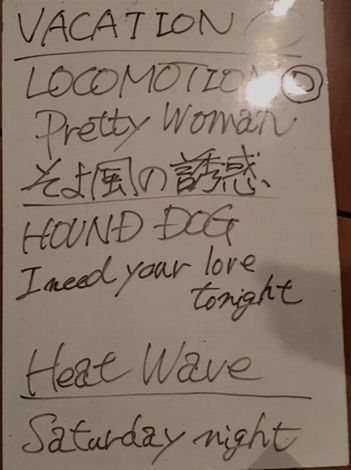 VACATION
LOCOMOTION D
Pretty Woman
そよ風の誘惑
HOUND DOG
I need your love
tonight
Heat Wave
Saturday night